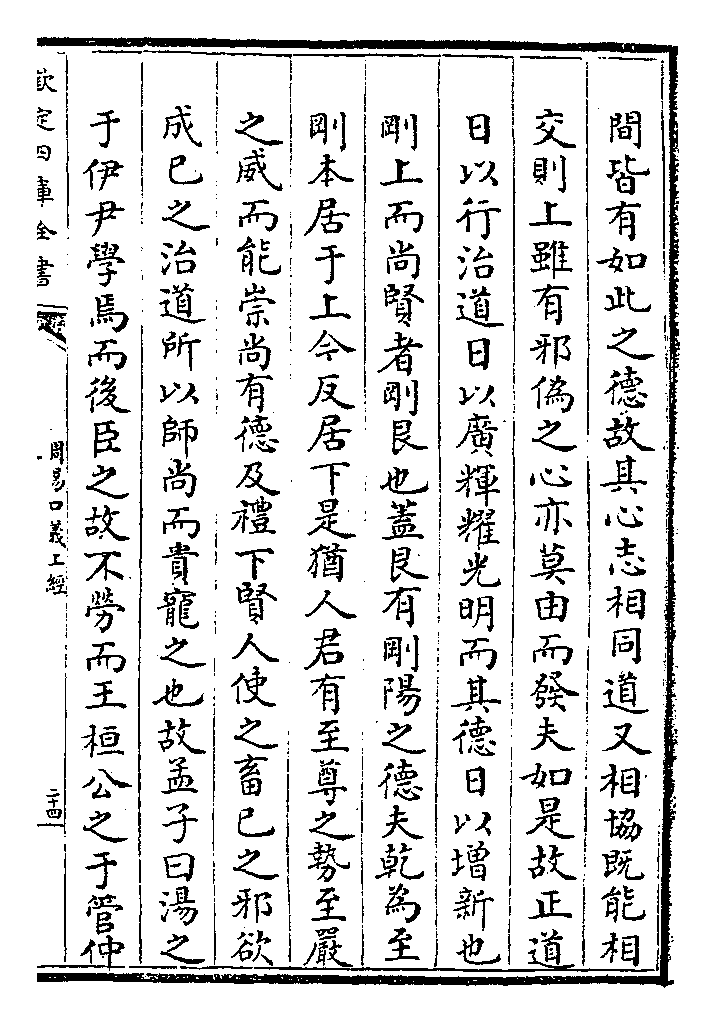 間皆有如此之德故其心志相同道又相協既能相
交則上雖有邪偽之心亦莫由而發夫如是故正道
日以行治道日以廣輝耀光明而其德日以增新也
剛上而尚賢者剛艮也蓋艮有剛陽之德夫乾為至
剛本居于上今反居下是猶人君有至尊之勢至嚴
之威而能崇尚有德及禮下賢人使之畜已之邪欲
成已之治道所以師尚而貴寵之也故孟子曰湯之
于伊尹學焉而後臣之故不勞而王桓公之于管仲
欽定四庫全書
周易口義上經
二十四